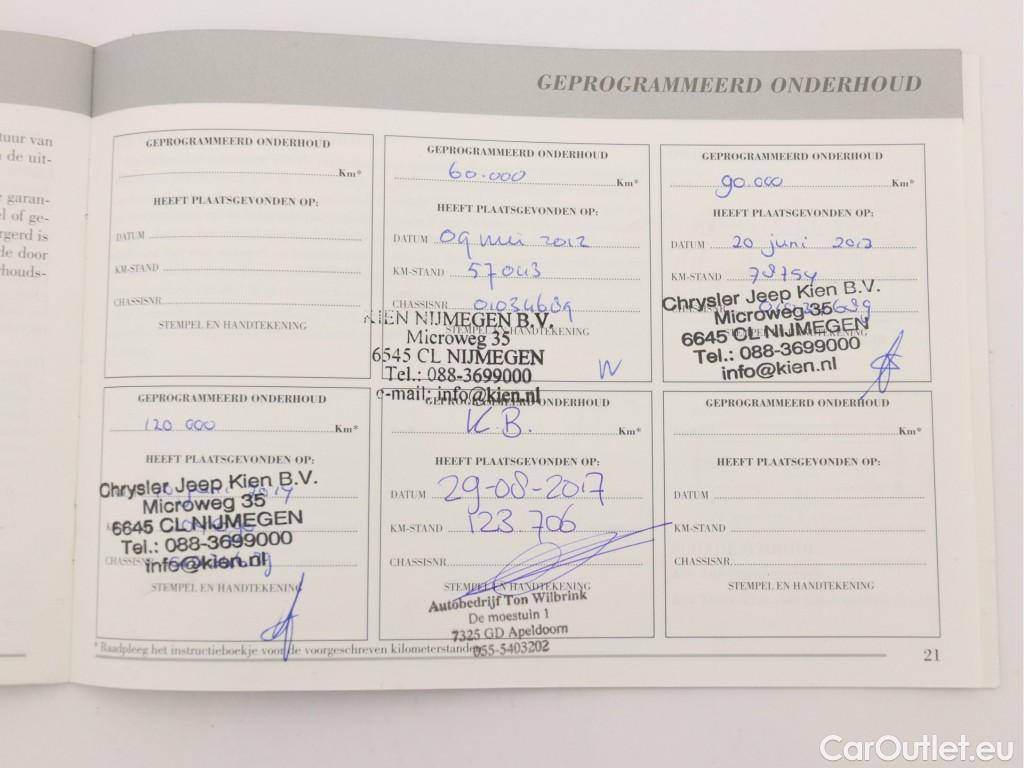 GEPROGRAMMEERD ONDERHOUD
tuur van
de uit-
garan-
of ge-
rgerd is
de door
houds-
GEPROGRAMMEERD ONDERHOUD
Km*
HEEFT PLAATSGEVONDEN OP:
DATUM
KM-STAND
CHASSISNR
STEMPEL EN HANDTEKENING
GEPROGRAMMEERD ONDERHOUD
60.000 Km*
HEEFT PLAATSGEVONDEN OP:
DATUM 09 mei 2012
KM-STAND 57043
CHASSISNR 01034689
STEMPEL EN HANDTEKENING
KIEN NIJMEGEN B.V.
Microweg 35
6545 CL NIJMEGEN
Tel.: 088-3699000
e-mail: info@kien.nl
GEPROGRAMMEERD ONDERHOUD
90.000 Km*
HEEFT PLAATSGEVONDEN OP:
DATUM 20 juni 2013
KM-STAND 78754
Chrysler Jeep Kien B.V.
Microweg 35
6645 CL NIJMEGEN
Tel.: 088-3699000
info@kien.nl
GEPROGRAMMEERD ONDERHOUD
120 000 Km*
HEEFT PLAATSGEVONDEN OP:
Chrysler Jeep Kien B.V.
Microweg 35
6645 CL NIJMEGEN
Tel.: 088-3699000
CHASSISNR
info@kien.nl
STEMPEL EN HANDTEKENING
GEPROGRAMMEERD ONDERHOUD
K.B. Km*
HEEFT PLAATSGEVONDEN OP:
DATUM 29-08-2017
KM-STAND 123.706
CHASSISNR
STEMPEL EN HANDTEKENING
Autobedrijf Ton Wilbrink
De moestuin 1
7325 GD Apeldoorn
055-5403202
GEPROGRAMMEERD ONDERHOUD
Km*
HEEFT PLAATSGEVONDEN OP:
DATUM
KM-STAND
CHASSISNR
STEMPEL EN HANDTEKENING
* Raadpleeg het instructieboekje voor de voorgeschreven kilometerstanden
21
CarOutlet.eu